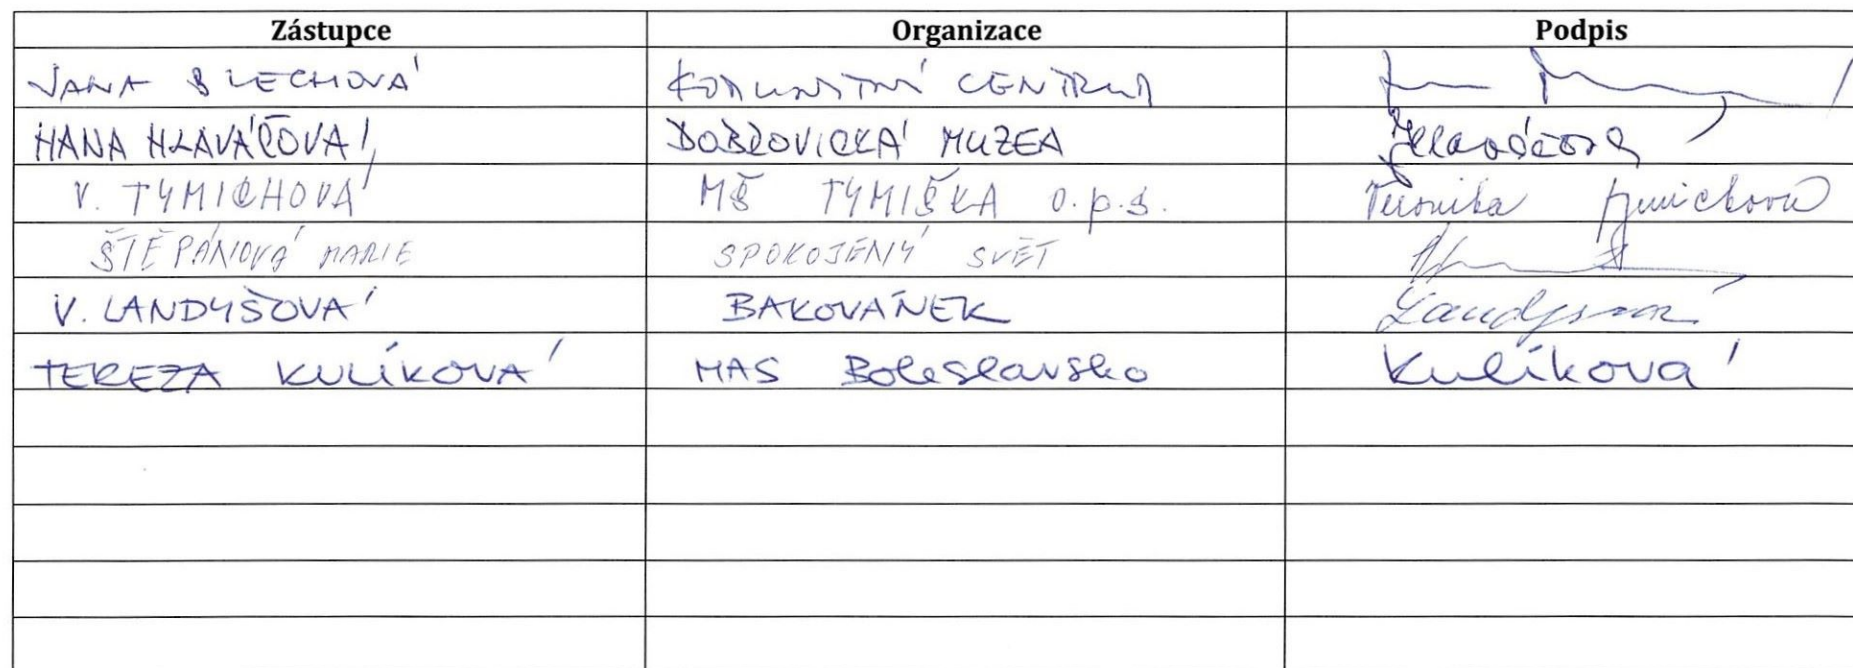 Zástupce Organizace Podpis
JANA BLECHOVÁ KOMUNITNÍ CENTRUM
HANA HLAVÁČOVÁ DOBROVICKÁ MUZEA Hlaváčová
V. TYMICHOVÁ MŠ TYMIŠKA o.p.s. Veronika Tymichová
ŠTĚPÁNOVÁ MARIE SPOKOJENÝ SVĚT
V. LANDYŠOVÁ BAKOVÁNEK Landyšová
TEREZA KULÍKOVÁ MAS Boleslavsko Kulíková